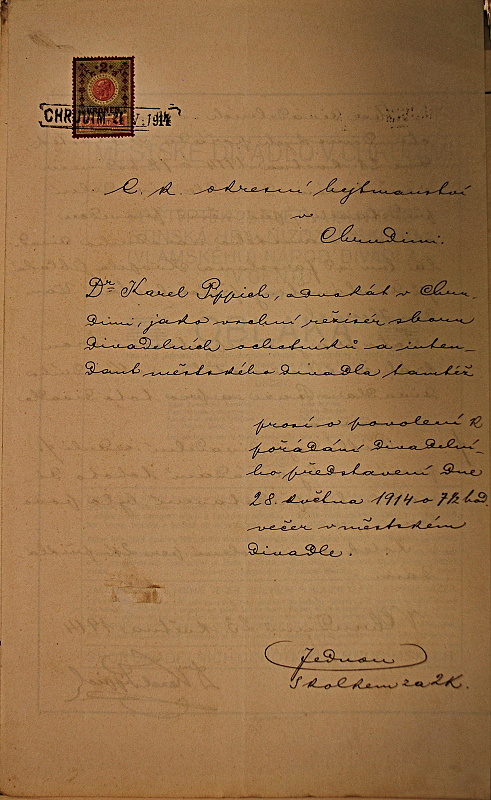 2
CHRUDIM 21 V. 1914
C. k. okresní hejtmanství
v
Chrudimi.
Dr. Karel Pippich, advokát v Chru-
dimi, jako vrchní režisér sboru
divadelních ochotníků a inten-
dant městského divadla tamtéž
prosí o povolení k
pořádání divadelní-
ho představení dne
28. května 1914 o 7½ hod.
večer v městském
divadle.
Jednou
S kolkem za 2K.